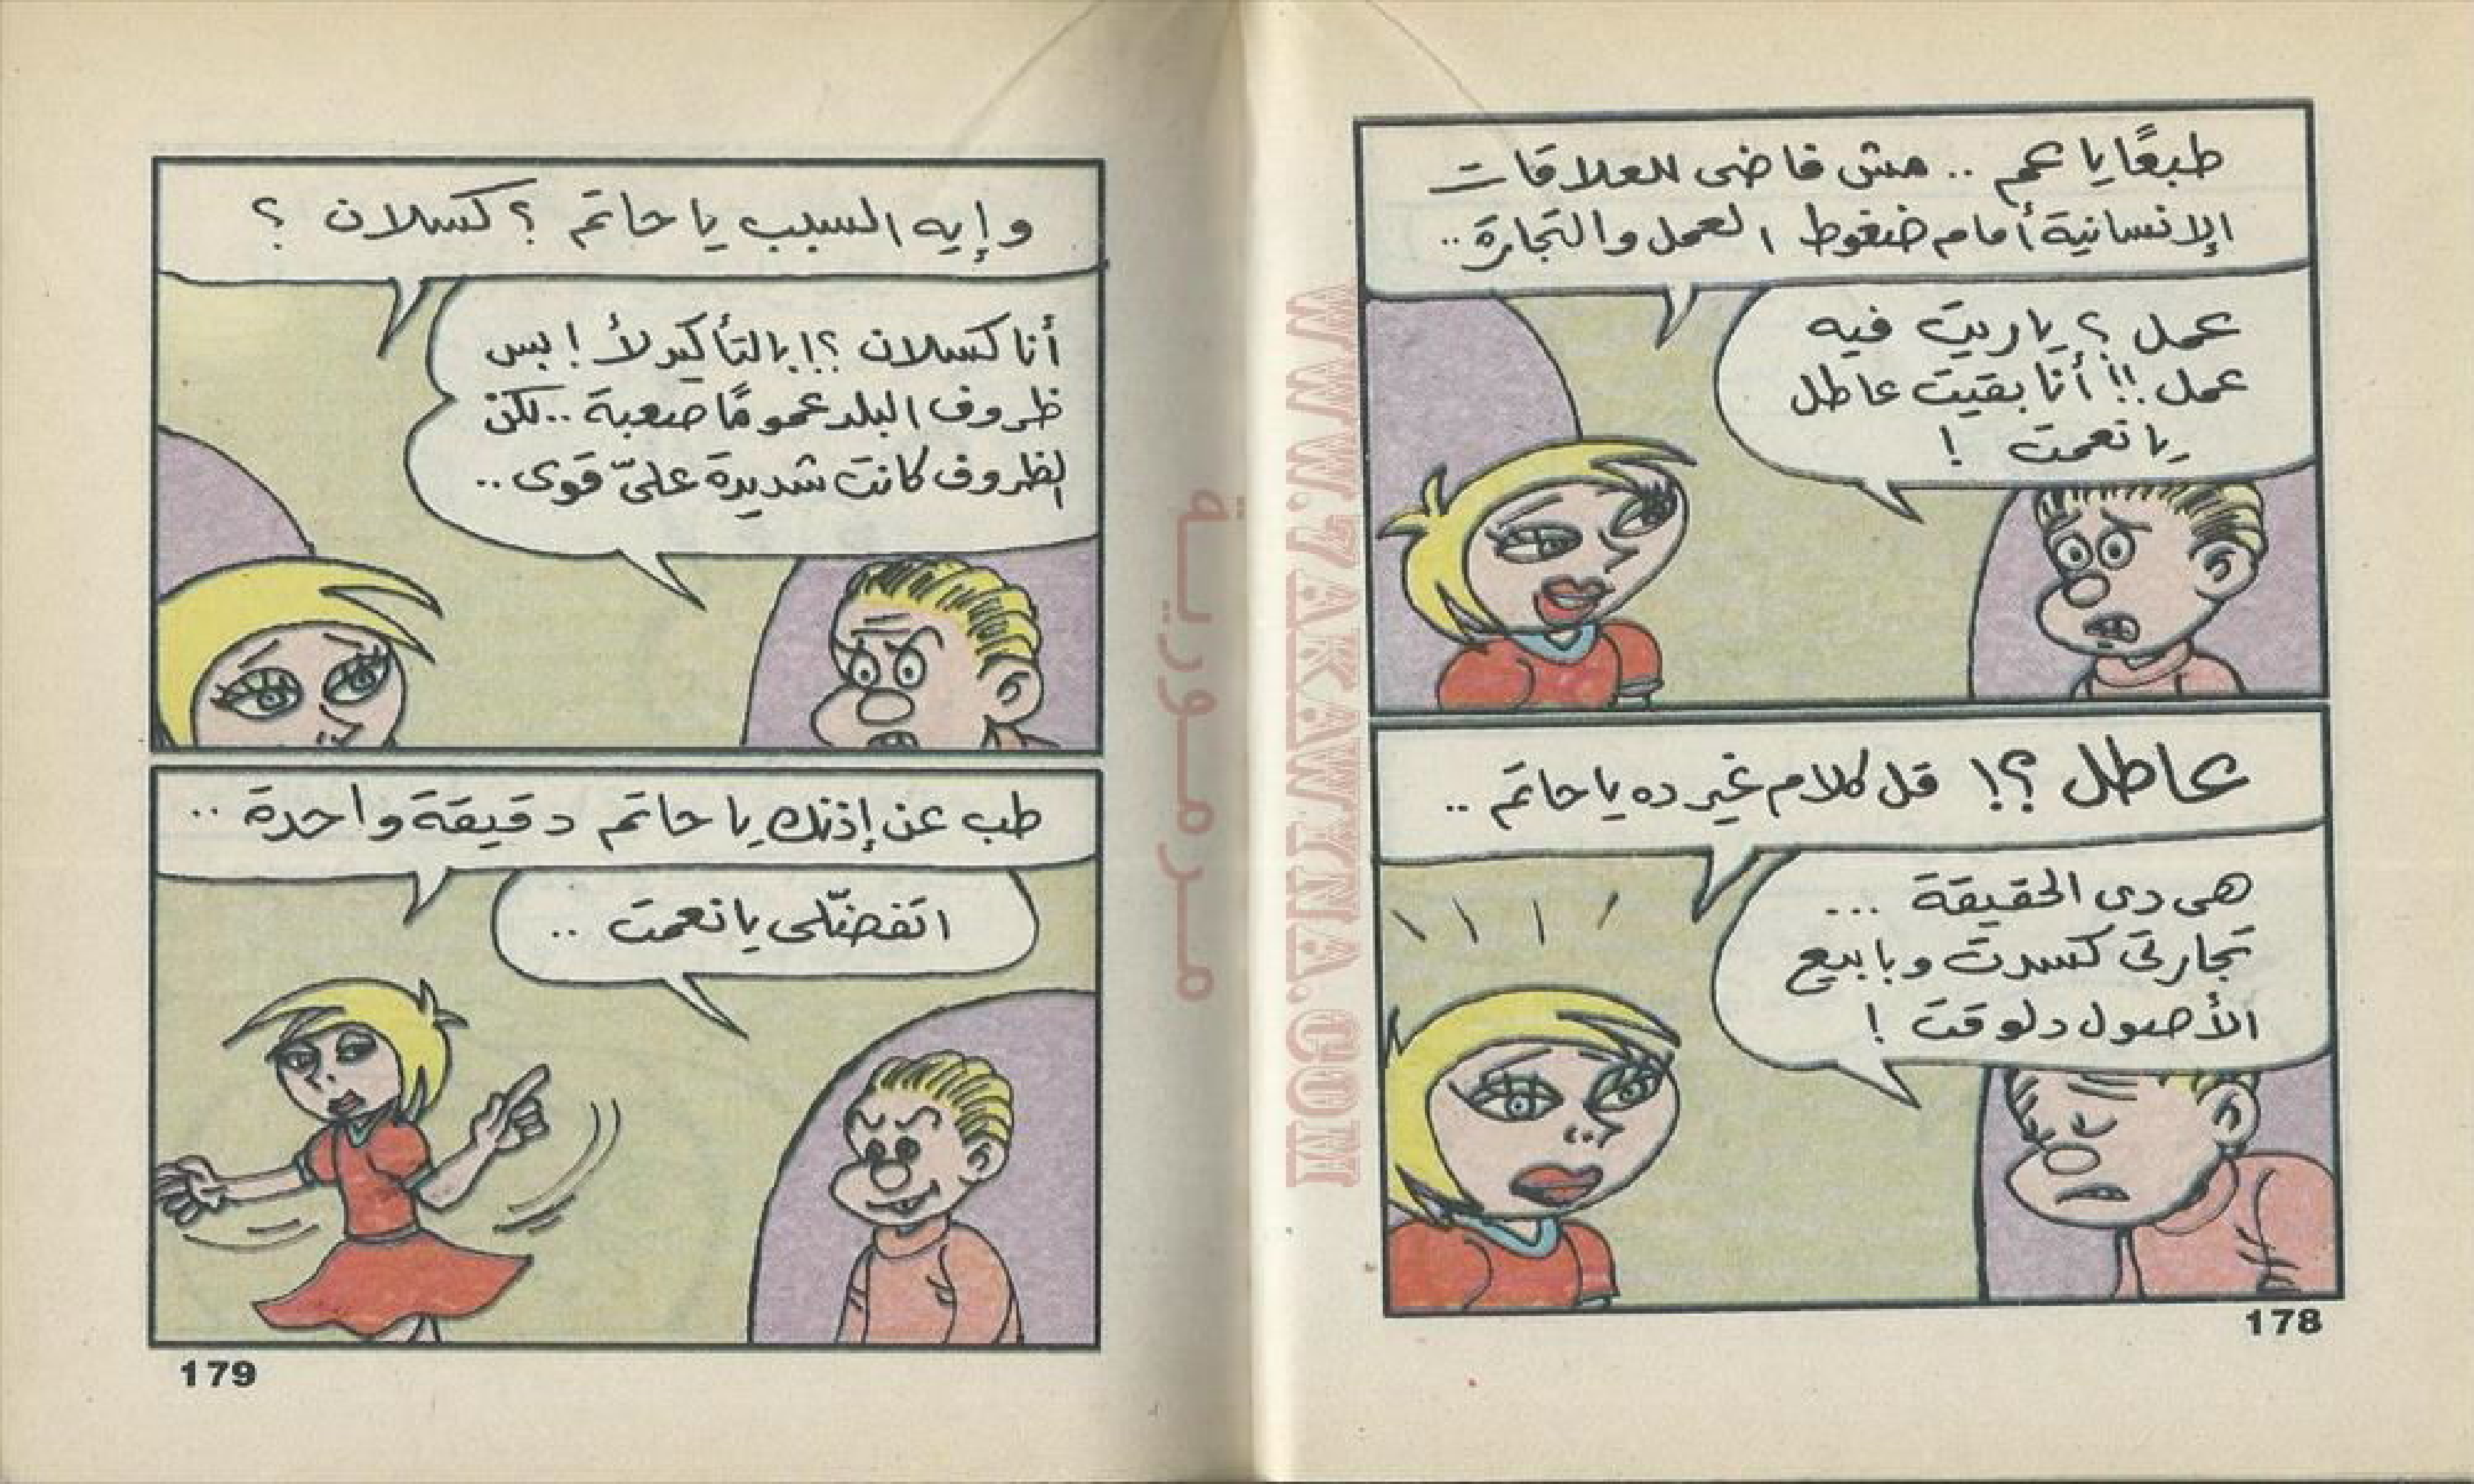 طبعًا يا عم .. مش فاضى للعلاقات
الإنسانية أمام ضغوط العمل والتجارة ..
عمل ؟ ياريت فيه
عمل !! أنا بقيت عاطل
يا نعمت !
عاطل ؟! قل كلام غير ده يا حاتم ..
هى دى الحقيقة ...
تجارتى كسدت وبابيع
الأصول دلوقت !
178
وإيه السبب يا حاتم ؟ كسلان ؟
أنا كسلان ؟! بالتأكيد لأ ! بس
ظروف البلد عمومًا صعبة .. لكن
الظروف كانت شديدة علىّ قوى ..
طب عن إذنك يا حاتم دقيقة واحدة ..
اتفضّلى يا نعمت ..
179
مرمورية
WWW.7AKAWINA.COM